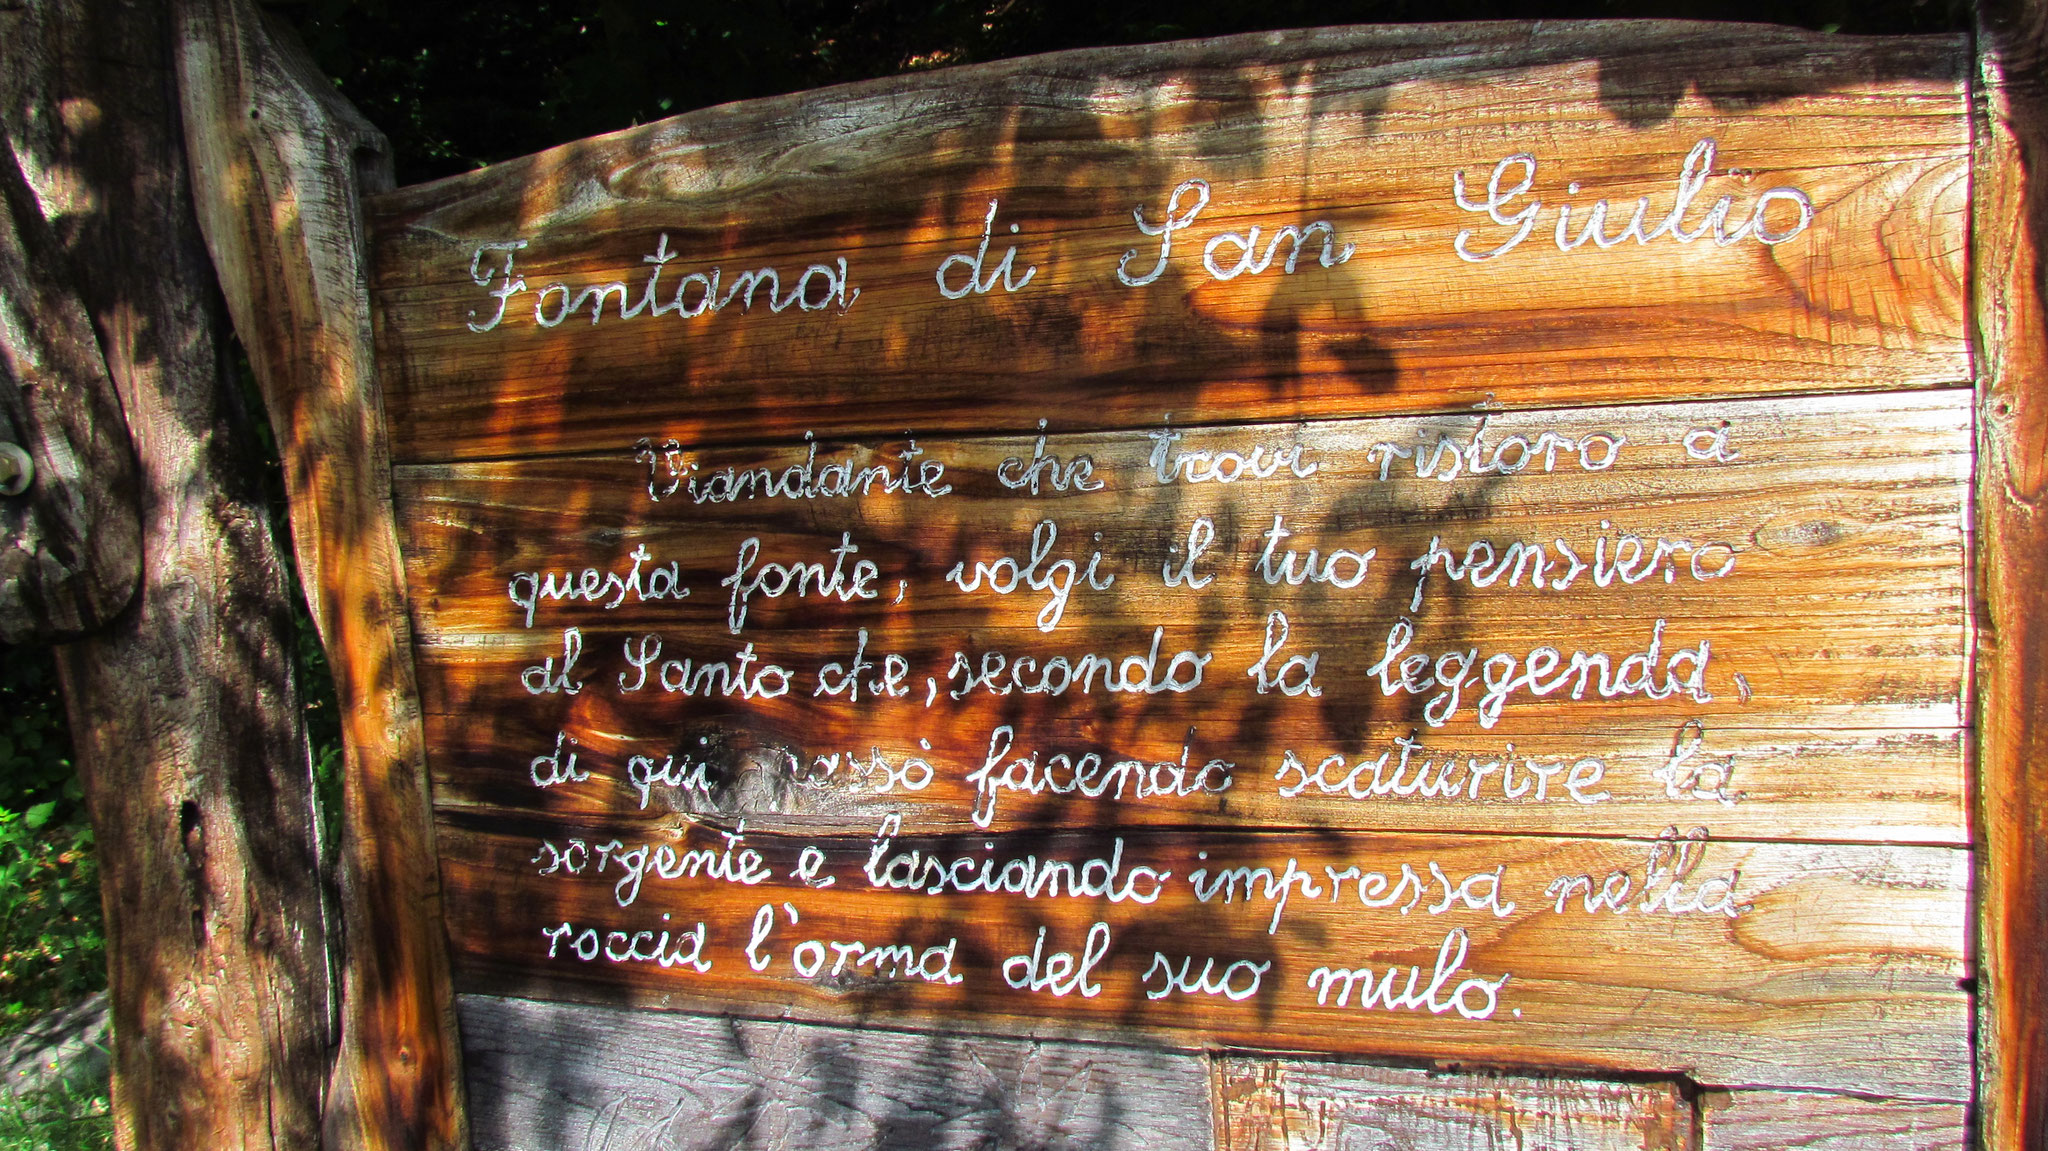 Fontana di San Giulio
Viandante che trovi ristoro a
questa fonte, volgi il tuo pensiero
al Santo che, secondo la leggenda,
di qui passò facendo scaturire la
sorgente e lasciando impressa nella
roccia l'orma del suo mulo.